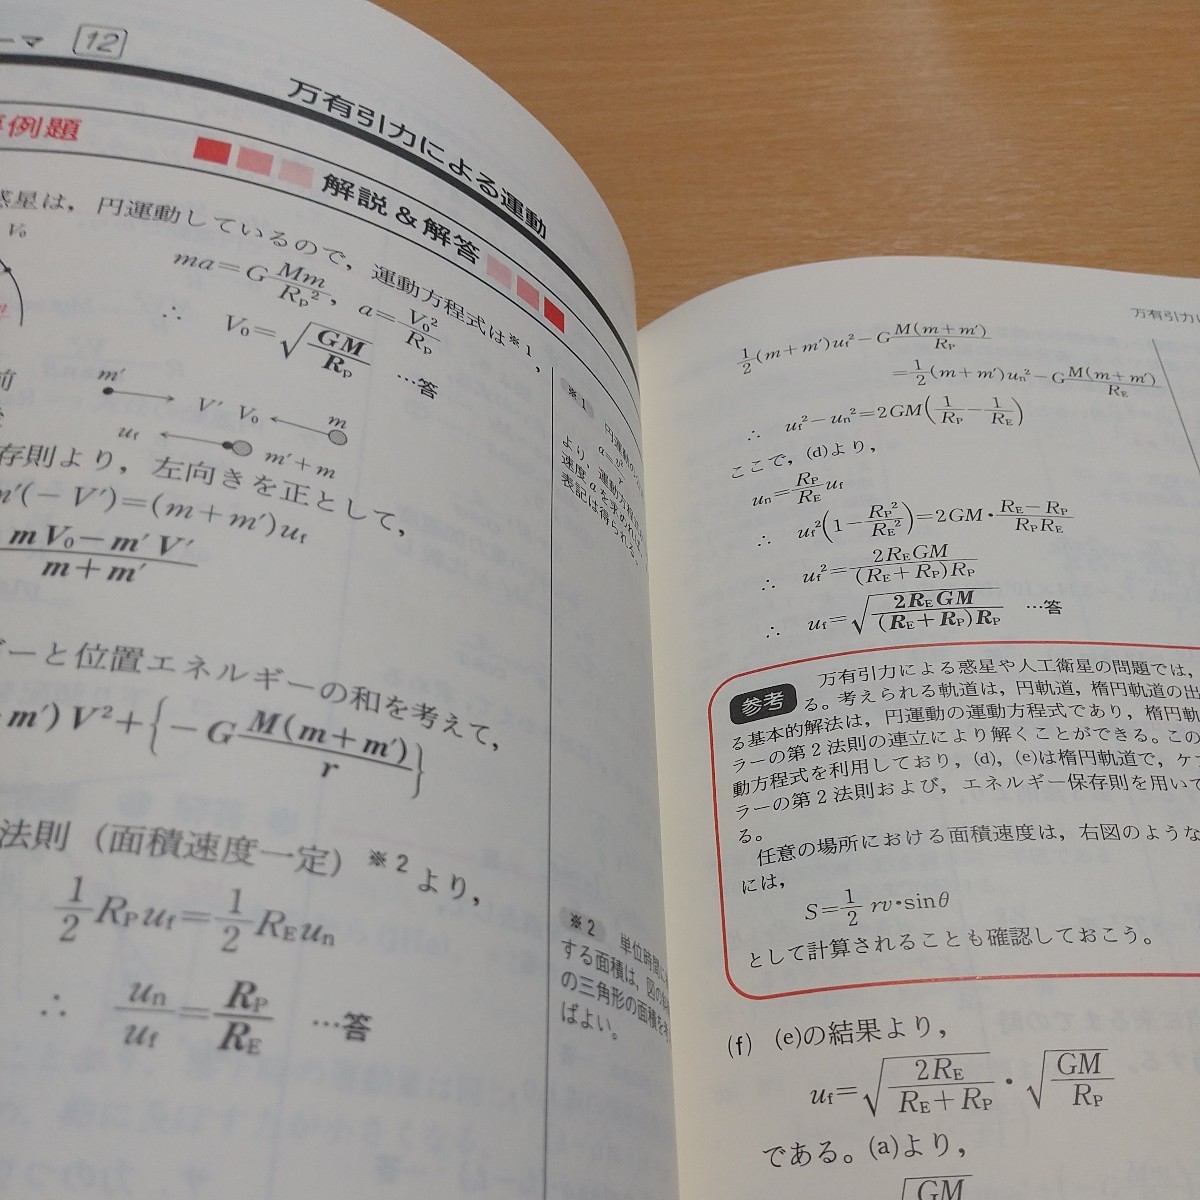 ーマ 12
万有引力による運動
例題
解説&解答
惑星は，円運動しているので，運動方程式は※1，
V₀
ma=G Mm/R_P², a=V₀²/R_P
∴ V₀=√(GM/R_P) …答
前
m′ V′ V₀ m
u_f m′+m
存則より，左向きを正として，
m′(−V′)=(m+m′)u_f
mV₀−m′V′/m+m′
ーと位置エネルギーの和を考えて，
m′)V²+{−G M(m+m′)/r}
法則（面積速度一定）※2より，
1/2 R_P u_f=1/2 R_E u_n
∴ u_n/u_f=R_P/R_E …答
※1
円運動の
a=v²/r
より，運動方程式
速度aを求めれば，
表記は得られる。
※2 単位時間に
する面積は，図の
の三角形の面積を考
ばよい。
万有引力に
1/2(m+m′)u_f²−G M(m+m′)/R_P
=1/2(m+m′)u_n²−G M(m+m′)/R_E
∴ u_f²−u_n²=2GM(1/R_P−1/R_E)
ここで，(d)より，
u_n=R_P/R_E u_f
∴ u_f²(1−R_P²/R_E²)=2GM・R_E−R_P/R_P R_E
∴ u_f²=2R_E GM/(R_E+R_P)R_P
∴ u_f=√(2R_E GM/(R_E+R_P)R_P) …答
参考 万有引力による惑星や人工衛星の問題では，
る。考えられる軌道は，円軌道，楕円軌道の出
る基本的解法は，円運動の運動方程式であり，楕円軌
ラーの第2法則の連立により解くことができる。この
動方程式を利用しており，(d)，(e)は楕円軌道で，ケプ
ラーの第2法則および，エネルギー保存則を用いて
る。
任意の場所における面積速度は，右図のような
には，
S=1/2 rv・sinθ
として計算されることも確認しておこう。
(f) (e)の結果より，
u_f=√(2R_E/R_E+R_P)・√(GM/R_P)
である。(a)より，
GM